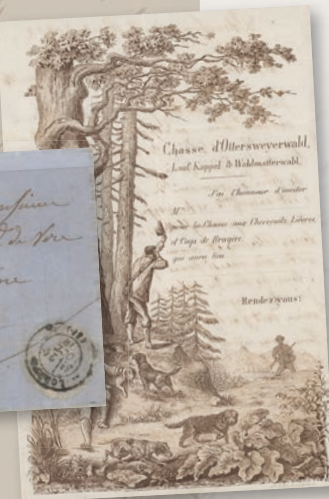 Chasse d'Ottersweyerwald,
Lauf, Kappel & Waldmatterwald.
J'ai l'honneur d'inviter
M
à la Chasse aux Chevreuils, Lièvres,
et Coqs de Bruyère
qui aura lieu
Rendez-vous:
Monsieur
de Vore